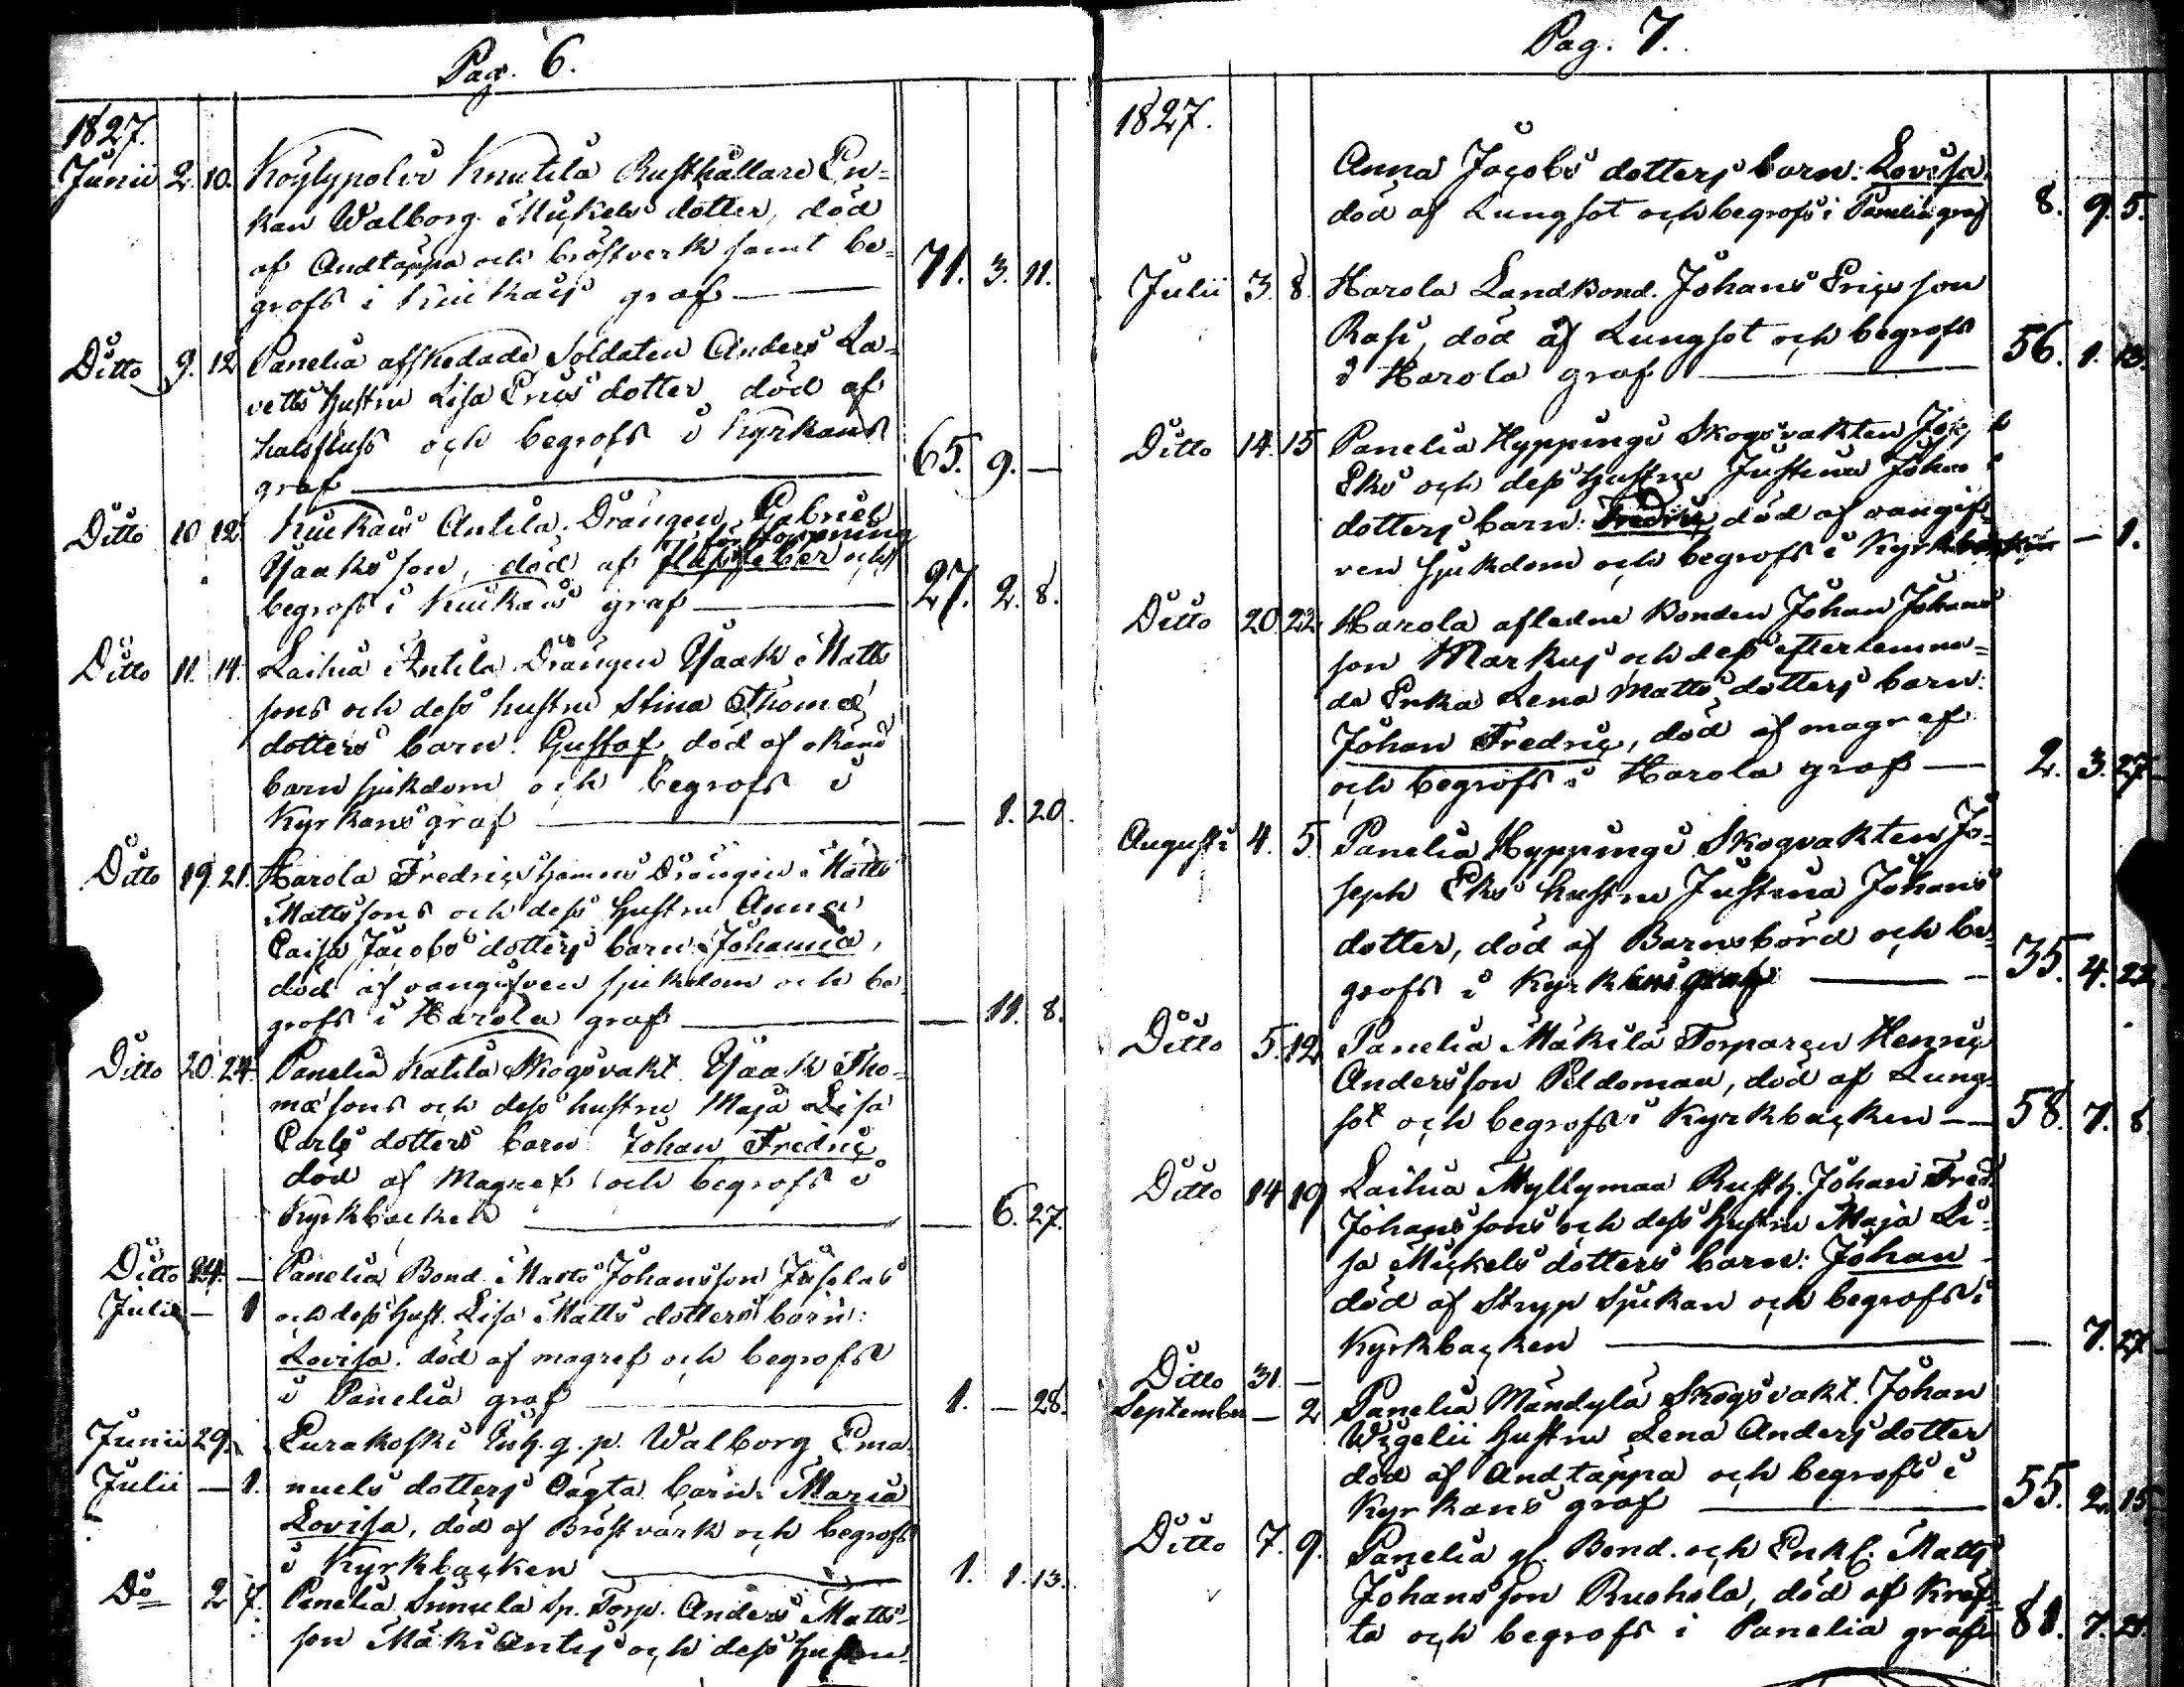 Pag. 6.
1827.
Junii 2. 10. Köylypolvi Knutila Rusthållare En-
kan Walborg Mickels dotter, död
af Andtäppa och bröstverk samt be-
grofs i Kiukais graf — 71. 3. 11.
Ditto 9. 12 Panelia afskedade Soldaten Anders La-
vetts hustru Lisa Erics dotter död af
halsfluss och begrofs i Kyrkans
graf — 65. 9. —
Ditto 10 12. Kiukais Antila Drängen Gabriel
förstoppning
Ysaaks son, död af och
begrofs i Kiukais graf — 27. 2. 8.
Ditto 11. 14. Lailua Antila Drängen Ysaak Matts
sons och dess hustru Stina Thomæ
dotters barn: Gustaf, död af okänd
barnsjukdom och begrofs i
Kyrkans graf — — 1. 20.
Ditto 19. 21. Harola Fredrics hamns Drängen Matts
Mattssons och dess hustru Anna
Caisa Jacobs dotters barn: Johanna,
död af oangifven sjukdom och be-
grofs i Harola graf — — 11. 8.
Ditto 20. 24. Panelia Katila Skogsvakt. Ysaak Tho-
mæ sons och dess hustru Maja Lisa
Carls dotters barn Johan Fredric
död af Magref och begrofs i
Kyrkbacken — — 6. 27.
Ditto 24. — Panelia Bond. Matts Johansson Juselas
Julii — 1 och dess hust. Lisa Matts dotters barn:
Lovisa. död af magref och begrofs
i Panelia graf — 1. — 28.
Junii 29. Eurakoski Inh. q. p. Walborg Ema-
Julii — 1. nuels dotters oägta barn: Maria
Lovisa, död af Bröst värk och begrofs
i Kyrkbacken — 1. 1. 13.
Do 2 7. Panelia Sunnila Sp. Torp. Anders Matts-
son Mäki Antis och dess hustru
Pag. 7.
1827.
Anna Jacobs dotters barn: Lovisa
död af Lungsot och begrofs i Panelia graf 8. 9. 5.
Julii 3. 8. Harola Landbond. Johans Ericsson
Rasi, död af Lungsot och begrofs
i Harola graf — 56. 1. 13.
Ditto 14. 15 Panelia Hyppingi Skogsvakten
Eks och dess hustru Justina Johans
dotters barn: Fredric, död af oangif-
ven sjukdom och begrofs i — 1.
Ditto 20. 22. Harola afledne Bonden Johan Johans
son Markus och dess efterlemna-
de Enka Lena Matts dotters barn:
Johan Fredric, död af magref
och begrofs i Harola graf — 2. 3. 27
Augusti 4. 5. Panelia Hyppingi Skogvakten Jo-
seph Eks hustru Justina Johans
dotter, död af Barnsbörd och be-
grofs i Kyrkans graf — 35. 4. 22
Ditto 5. 12 Panelia Mäkilä Torparen Henric
Andersson Peldomaa, död af Lung-
sot och begrofs i Kyrkbacken — 58. 7. 8
Ditto 14 19 Lailua Myllymaa Rusth. Johan Fred.
Johanssons och dess hustru Maja Li-
sa Mickels dotters barn: Johan
död af Stryp sjukan och begrofs i
Kyrkbacken — — 7. 27
Ditto 31. —
September — 2 Panelia Mändylä Skogsvakt. Johan
Wigelii hustru Lena Anders dotter
död af Andtäppa och begrofs i
Kyrkans graf — 55. 2. 15
Ditto 7. 9. Panelia gl. Bond. och Enkl. Matts
Johansson Ruohola, död af Kräf-
ta och begrofs i Panelia graf 81. 7. 21.